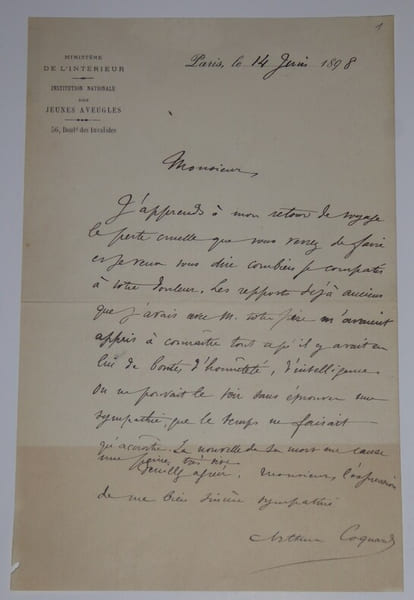 1
MINISTÈRE
DE L'INTÉRIEUR
INSTITUTION NATIONALE
DES
JEUNES AVEUGLES
56, Boulᵈ. des Invalides
Paris, le 14 Juin 1898
Monsieur,
J'apprends à mon retour de voyage
la perte cruelle que vous venez de faire
et je veux vous dire combien je compatis
à votre douleur. Les rapports déjà anciens
que j'avais avec M. votre père m'avaient
appris à connaître tout ce qu'il y avait en
lui de bonté, d'honnêteté, d'intelligence.
On ne pouvait le voir sans éprouver une
sympathie que le temps ne faisait
qu'accroître. La nouvelle de sa mort me cause
une peine très vive.
Veuillez agréer, Monsieur, l'expression
de ma bien sincère sympathie
Arthur Coquard